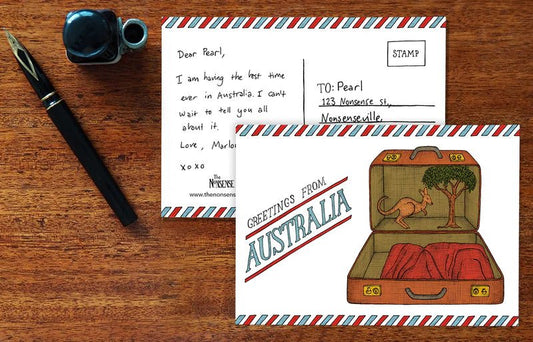 Dear Pearl,
I am having the best time
ever in Australia. I can't
wait to tell you all
about it.
Love, Marlo
xoxo
the
NONSENSE
www.thenonsens
STAMP
TO: Pearl
123 Nonsense st,
Nonsenseville,
GREETINGS FROM
AUSTRALIA